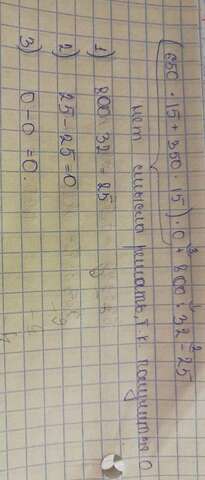 (650 · 15 + 350 · 15) · 0 + 800 : 32 - 25
нет смысла решать, т.к получится 0
1) 800 : 32 = 25
2) 25 - 25 = 0
3) 0 - 0 = 0.